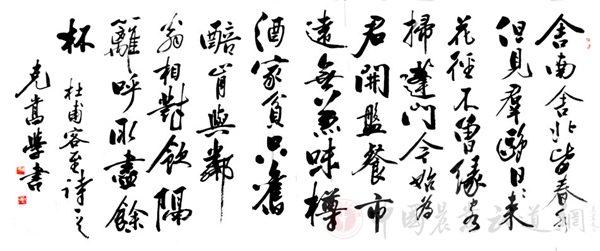 舍南舍北皆春水
但見羣鷗日日來
花徑不曾緣客
掃蓬門今始為
君開盤餐市
遠無兼味樽
酒家貧只舊
醅肯與鄰
翁相對飲隔
籬呼取盡餘
杯
杜甫客至詩
學書